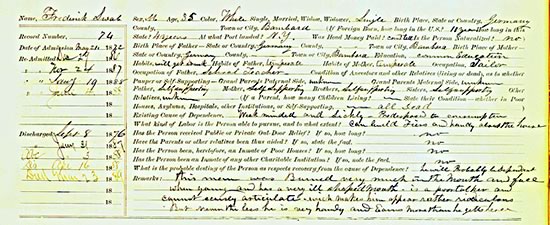 Name, Frederick Swab Sex, M Age, 35 Color, White Single, Married, Widow, Widower, Single Birth Place, State or Country, Germany
County, Town or City, Bamberd (If Foreign Born, how long in the U.S. 10 years How long in this
Record Number, 74 State At what Port landed? N.Y. Was Head Money Paid? Is the Person Naturalized? no
Date of Admission, May 21 1872 Birth Place of Father—State or Country, Germany County, Town or City, Birth Place of Mother—
Re-Admitted State or Country, Germany County, Town or City, Education, Common Education
Habits, Habits of Father, Temperate Habits of Mother, Temperate Occupation,
Nov 24 1887 Occupation of Father, School Teacher Condition of Ancestors and other Relatives (living or dead), as to whether
19 1888 Pauper or Self-Supporting—Grand Parents Paternal side, Grand Parents Maternal side,
Father, Self Supporting Mother, Self Supporting Brothers, Self Supporting Sisters, Self Supporting Other
Relatives, (If a Parent, how many Children living? State their Condition—whether in Poor
Houses, Asylums, Hospitals, other Institutions, or Self-Supporting, all dead
Existing Cause of Dependence, Weak minded and Sickly - Predisposed to consumption
What kind of Labor is the Person able to pursue, and to what extent? Can build Fires and handy about the house
Discharged Sept 8 1876 Has the Person received Public or Private Out-Door Relief? If so, how long? no
Have the Parents or other relatives been thus aided? If so, state the fact. no
Has the Person been, heretofore, an Inmate of Poor Houses? If so, how long? no
Has the Person been an Inmate of any other Charitable Institution? If so, note the fact. no
What is the probable destiny of the Person as respects recovery from the cause of Dependence? he will Probably be dependent
Remarks: This man was Burned very much in the Mouth and face
when young and has a very ill shaped Mouth is a poor talker and
cannot scarcely articulate which makes him appear rather rediculous
But nevertheless he is very handy and Earns more than he gets